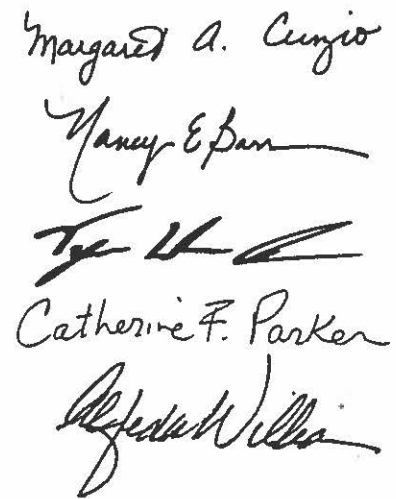 Margaret A. Cunzio
Nancy E Barr
Catherine F. Parker
Alfreda Willia